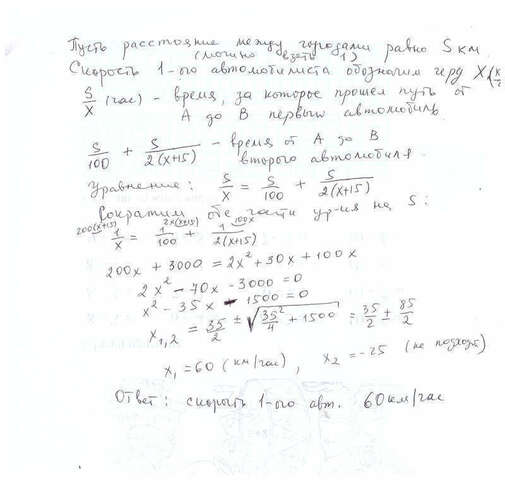 Пусть расстояние между городами равно S км
(можно взять 1)
Скорость 1-ого автомобилиста обозначим через X (
S/X (час) - время, за которое прошел путь от
А до В первый автомобиль
S/100 + S/2(x+15) - время от А до В
второго автомобиля.
Уравнение: S/X = S/100 + S/2(x+15)
Сократим обе части ур-ия на S:
200(x+15) 2x(x+15) 100x
1/x = 1/100 + 1/2(x+15)
200x + 3000 = 2x² + 30x + 100x
2x² - 70x - 3000 = 0
x² - 35x - 1500 = 0
x1,2 = 35/2 ± √(35²/4 + 1500) = 35/2 ± 85/2
x1 = 60 (км/час), x2 = -25 (не подходит)
Ответ: скорость 1-ого авт. 60 км/час